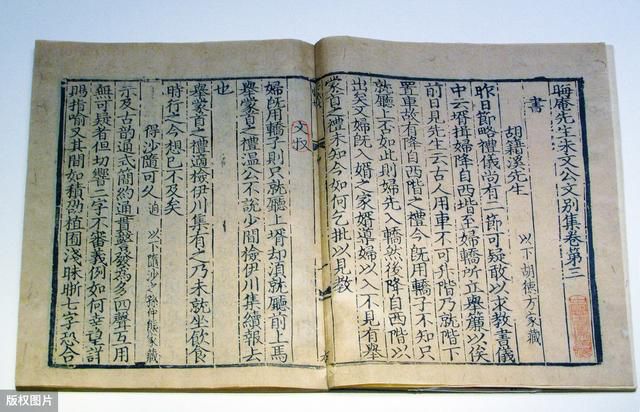 晦庵先生朱文公文別集卷第三
書
胡籍溪先生 以下胡德方家藏
昨日節略禮儀尚有一節可疑敢以求教書儀
中云壻揖婦降自西堦至婦轎所立舉簾以俟
前日見先生云古人用車不可升階乃就階下
置車故有降自西階之禮今旣用轎子不知只
就廳上否如此則婦先入轎然後降自西階以
出矣又婦旣入婚之家壻導婦以入不見有舉
蒙首之禮未知今如何乞批以見教
文叔
婦旣用轎子則只就廳上壻却須就廳前上馬
舉蒙首之禮溫公不說少間檢伊川集續報去
也
舉蒙首之禮適檢伊川集有之乃未就坐飲食
時行之今想已不及矣
得沙隨可久 迫 以下隨沙之孫仲熊家藏
示及古韵通式簡約通貫警發為多四聲互用
無可疑者但切響二字不審義例如何幸望詳
賜指喻又其間如積劭植園淺昧晰七字恐合
版权图片